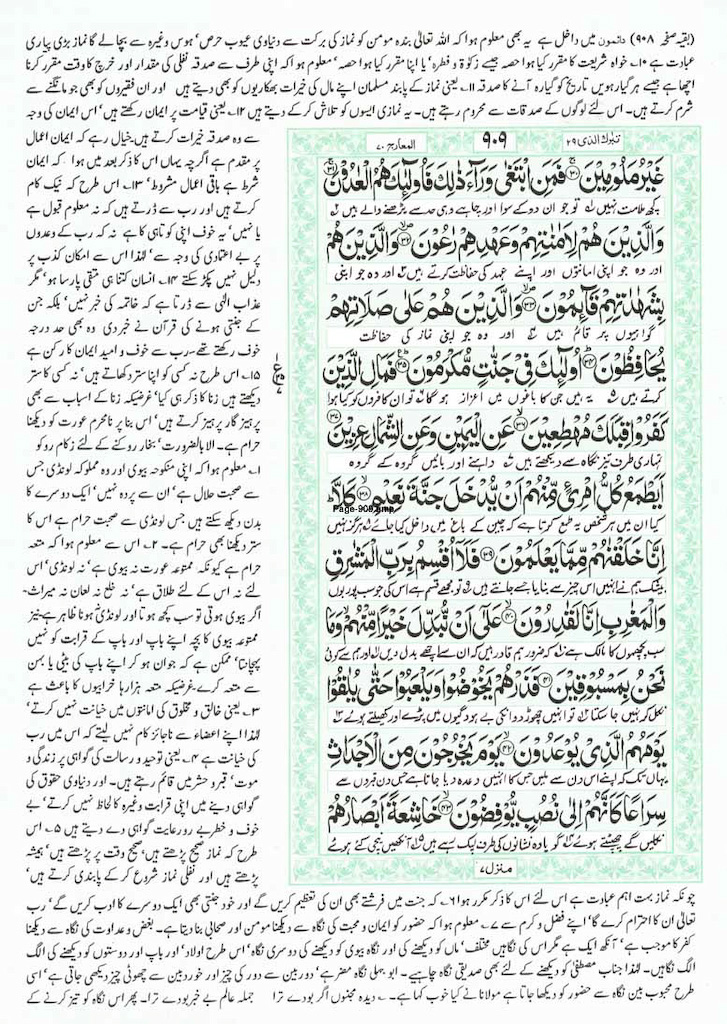 (بقیہ صفحہ ۹۰۸) دائمون میں داخل ہے یہ بھی معلوم ہوا کہ اللہ تعالیٰ بندہ مومن کو نماز کی برکت سے دنیاوی عیوب حرص' ہوس وغیرہ سے بچالے گا نماز بڑی پیاری
عبادت ہے ۱۰۔ خواہ شریعت کا مقرر کیا ہوا حصہ جیسے زکوٰۃ و فطرہ' یا اپنا مقرر کیا ہوا حصہ' معلوم ہوا کہ اپنی طرف سے صدقہ نفلی کی مقدار اور خرچ کا وقت مقرر کرنا
اچھا ہے جیسے ہر گیارہویں تاریخ کو گیارہ آنے کا صدقہ ۱۱۔ یعنی نماز کے پابند مسلمان اپنے مال کی خیرات بھکاریوں کو بھی دیتے ہیں اور ان فقیروں کو بھی جو مانگنے سے
شرم کرتے ہیں۔ اس لئے لوگوں کے صدقات سے محروم رہتے ہیں۔ یہ نمازی ایسوں کو تلاش کر کے دیتے ہیں ۱۲۔ یعنی قیامت پر ایمان رکھتے ہیں' اس ایمان کی وجہ
تبٰرك الذی ۲۹
۹۰۹
المعارج ۷۰
غَيْرُ مَلُومِيْنَ ۳۰ فَمَنِ ابْتَغٰى وَرَآءَ ذٰلِكَ فَاُولٰٓئِكَ هُمُ الْعٰدُوْنَ ۳۱
کچھ ملامت نہیں تو جو ان دو کے سوا اور چاہے وہی حد سے بڑھنے والے ہیں
وَالَّذِيْنَ هُمْ لِاَمٰنٰتِهِمْ وَعَهْدِهِمْ رٰعُوْنَ ۳۲ وَالَّذِيْنَ هُمْ
اور وہ جو اپنی امانتوں اور اپنے عہد کی حفاظت کرتے ہیں اور وہ جو اپنی
بِشَهٰدٰتِهِمْ قَآئِمُوْنَ ۳۳ وَالَّذِيْنَ هُمْ عَلٰى صَلَاتِهِمْ
گواہیوں پر قائم ہیں اور وہ جو اپنی نماز کی حفاظت
يُحَافِظُوْنَ ۳۴ اُولٰٓئِكَ فِيْ جَنّٰتٍ مُّكْرَمُوْنَ ۳۵ فَمَالِ الَّذِيْنَ
کرتے ہیں یہ ہیں جن کا باغوں میں اعزاز ہوگا تو ان کافروں کو کیا ہوا
كَفَرُوْا قِبَلَكَ مُهْطِعِيْنَ ۳۶ عَنِ الْيَمِيْنِ وَعَنِ الشِّمَالِ عِزِيْنَ ۳۷
تمہاری طرف تیز نگاہ سے دیکھتے ہیں داہنے اور بائیں گروہ کے گروہ
اَيَطْمَعُ كُلُّ امْرِئٍ مِّنْهُمْ اَنْ يُّدْخَلَ جَنَّةَ نَعِيْمٍ ۳۸ كَلَّا
Page-909.bmp
کیا ان میں ہر شخص یہ طمع کرتا ہے کہ چین کے باغ میں داخل کیا جائے ہرگز نہیں
اِنَّا خَلَقْنٰهُمْ مِّمَّا يَعْلَمُوْنَ ۳۹ فَلَآ اُقْسِمُ بِرَبِّ الْمَشٰرِقِ
بیشک ہم نے انہیں اس چیز سے بنایا جسے جانتے ہیں تو مجھے قسم ہے اس کی جو سب پوربوں
وَالْمَغٰرِبِ اِنَّا لَقٰدِرُوْنَ ۴۰ عَلٰٓى اَنْ نُّبَدِّلَ خَيْرًا مِّنْهُمْ وَمَا
سب پچھموں کا مالک ہے کہ ضرور ہم قادر ہیں کہ ان سے اچھے بدل دیں اور ہم سے کوئی
نَحْنُ بِمَسْبُوْقِيْنَ ۴۱ فَذَرْهُمْ يَخُوْضُوْا وَيَلْعَبُوْا حَتّٰى يُلٰقُوْا
نکل کر نہیں جا سکتا تو انہیں چھوڑ دو انکی بے ہودگیوں میں پڑے اور کھیلتے ہوئے
يَوْمَهُمُ الَّذِيْ يُوْعَدُوْنَ ۴۲ يَوْمَ يَخْرُجُوْنَ مِنَ الْاَجْدَاثِ
یہاں تک کہ اپنے اس دن سے ملیں جس کا انہیں وعدہ دیا جاتا ہے جس دن قبروں سے
سِرَاعًا كَاَنَّهُمْ اِلٰى نُصُبٍ يُّوْفِضُوْنَ ۴۳ خَاشِعَةً اَبْصَارُهُمْ
نکلیں گے جھپٹتے ہوئے گویا وہ نشانوں کی طرف لپک رہے ہیں آنکھیں نیچی کئے ہوئے
منزل ۷
سے وہ صدقہ خیرات کرتے ہیں۔ خیال رہے کہ ایمان اعمال
پر مقدم ہے اگرچہ یہاں اس کا ذکر بعد میں ہوا کہ ایمان
شرط ہے باقی اعمال مشروط' ۱۳۔ اس طرح کہ نیک کام
کرتے ہیں اور رب سے ڈرتے ہیں کہ نہ معلوم قبول ہے
یا نہیں' یہ خوف اپنی کوتاہی کا ہے نہ کہ رب کے وعدوں
پر بے اعتمادی کی وجہ سے' لہٰذا اس سے امکان کذب پر
دلیل نہیں پکڑ سکتے ۱۴۔ انسان کتنا ہی متقی پارسا ہو' مگر
عذاب الٰہی سے ڈرتا ہے کہ خاتمہ کی خبر نہیں' بلکہ جن
کے جنتی ہونے کی قرآن نے خبر دی وہ بھی حد درجہ
خوف رکھتے تھے۔ رب سے خوف و امید ایمان کا رکن ہے
۱۵۔ اس طرح نہ کسی کو اپنا ستر دکھاتے ہیں' نہ کسی کا ستر
دیکھتے ہیں زنا کا ذکر ہی کیا' غرضیکہ زنا کے اسباب سے بھی
پرہیز گار پرہیز کرتے ہیں' اس بنا پر نامحرم عورت کو دیکھنا
حرام ہے۔ الا بالضرورت' بخار روکنے کے لئے زکام روکو
۱۔ معلوم ہوا کہ اپنی منکوحہ بیوی اور وہ مملوکہ لونڈی جس
سے صحبت حلال ہے' ان سے پردہ نہیں' ایک دوسرے کا
بدن دیکھ سکتے ہیں جس لونڈی سے صحبت حرام ہے اس کا
ستر دیکھنا بھی حرام ہے۔ ۲۔ اس سے معلوم ہوا کہ متعہ
حرام ہے کیونکہ ممتوعہ عورت نہ بیوی ہے' نہ لونڈی' اس
لئے نہ اس کے لئے طلاق ہے' نہ خلع نہ لعان نہ میراث۔
اگر بیوی ہوتی تو سب کچھ ہوتا اور لونڈی نہ ہونا ظاہر ہے نیز
ممتوعہ بیوی کا بچہ اپنے باپ اور باپ کے قرابت کو نہیں
پہچانتا' ممکن ہے کہ جوان ہو کر اپنے باپ کی بیٹی یا بہن
سے متعہ کرے۔ غرضیکہ متعہ ہزارہا خرابیوں کا باعث ہے
۳۔ یعنی خالق و مخلوق کی امانتوں میں خیانت نہیں کرتے'
لہٰذا اپنے اعضاء سے ناجائز کام نہیں لیتے کہ اس میں رب
کی خیانت ہے ۴۔ یعنی توحید و رسالت کی گواہی پر زندگی و
موت' قبر و حشر میں قائم رہتے ہیں۔ اور دنیاوی حقوق کی
گواہی دینے میں اپنی قرابت وغیرہ کا لحاظ نہیں کرتے' بے
خوف و خطر بے رو رعایت گواہی دے دیتے ہیں ۵۔ اس
طرح کہ نماز صحیح پڑھتے ہیں' صحیح وقت پر پڑھتے ہیں' ہمیشہ
پڑھتے ہیں اور نفلی نماز شروع کر کے پابندی کرتے ہیں'
چونکہ نماز بہت اہم عبادت ہے اس لئے اس کا ذکر مکرر ہوا ۶۔ کہ جنت میں فرشتے بھی ان کی تعظیم کریں گے اور خود جنتی بھی ایک دوسرے کا ادب کریں گے' رب
تعالیٰ ان کا احترام کرے گا' اپنے فضل و کرم سے ۷۔ معلوم ہوا کہ حضور کو ایمان و محبت کی نگاہ سے دیکھنا مومن اور صحابی بنا دیتا ہے۔ بغض و عداوت کی نگاہ سے دیکھنا
کفر کا موجب ہے' آنکھ ایک ہے مگر اس کی نگاہیں مختلف' ماں کو دیکھنے کی اور نگاہ بیوی کو دیکھنے کی دوسری نگاہ' اس طرح اولاد' اور باپ اور دوستوں کو دیکھنے کی الگ
الگ نگاہیں۔ لہٰذا جناب مصطفیٰ کو دیکھنے کے لئے بھی صدیقی نگاہ چاہیے۔ ابو جہلی نگاہ مضر ہے' دوربین سے دور کی چیز اور خوردبین سے چھوٹی چیز دیکھی جاتی ہے' اسی
طرح محبوب بین نگاہ سے حضور کو دیکھا جاتا ہے مولانا نے کیا خوب کہا ہے۔ دیدہ مجنوں اگر بودے ترا جملہ عالم بے خبر بودے ترا۔ پھر اس نگاہ کو تیز کرنے کے